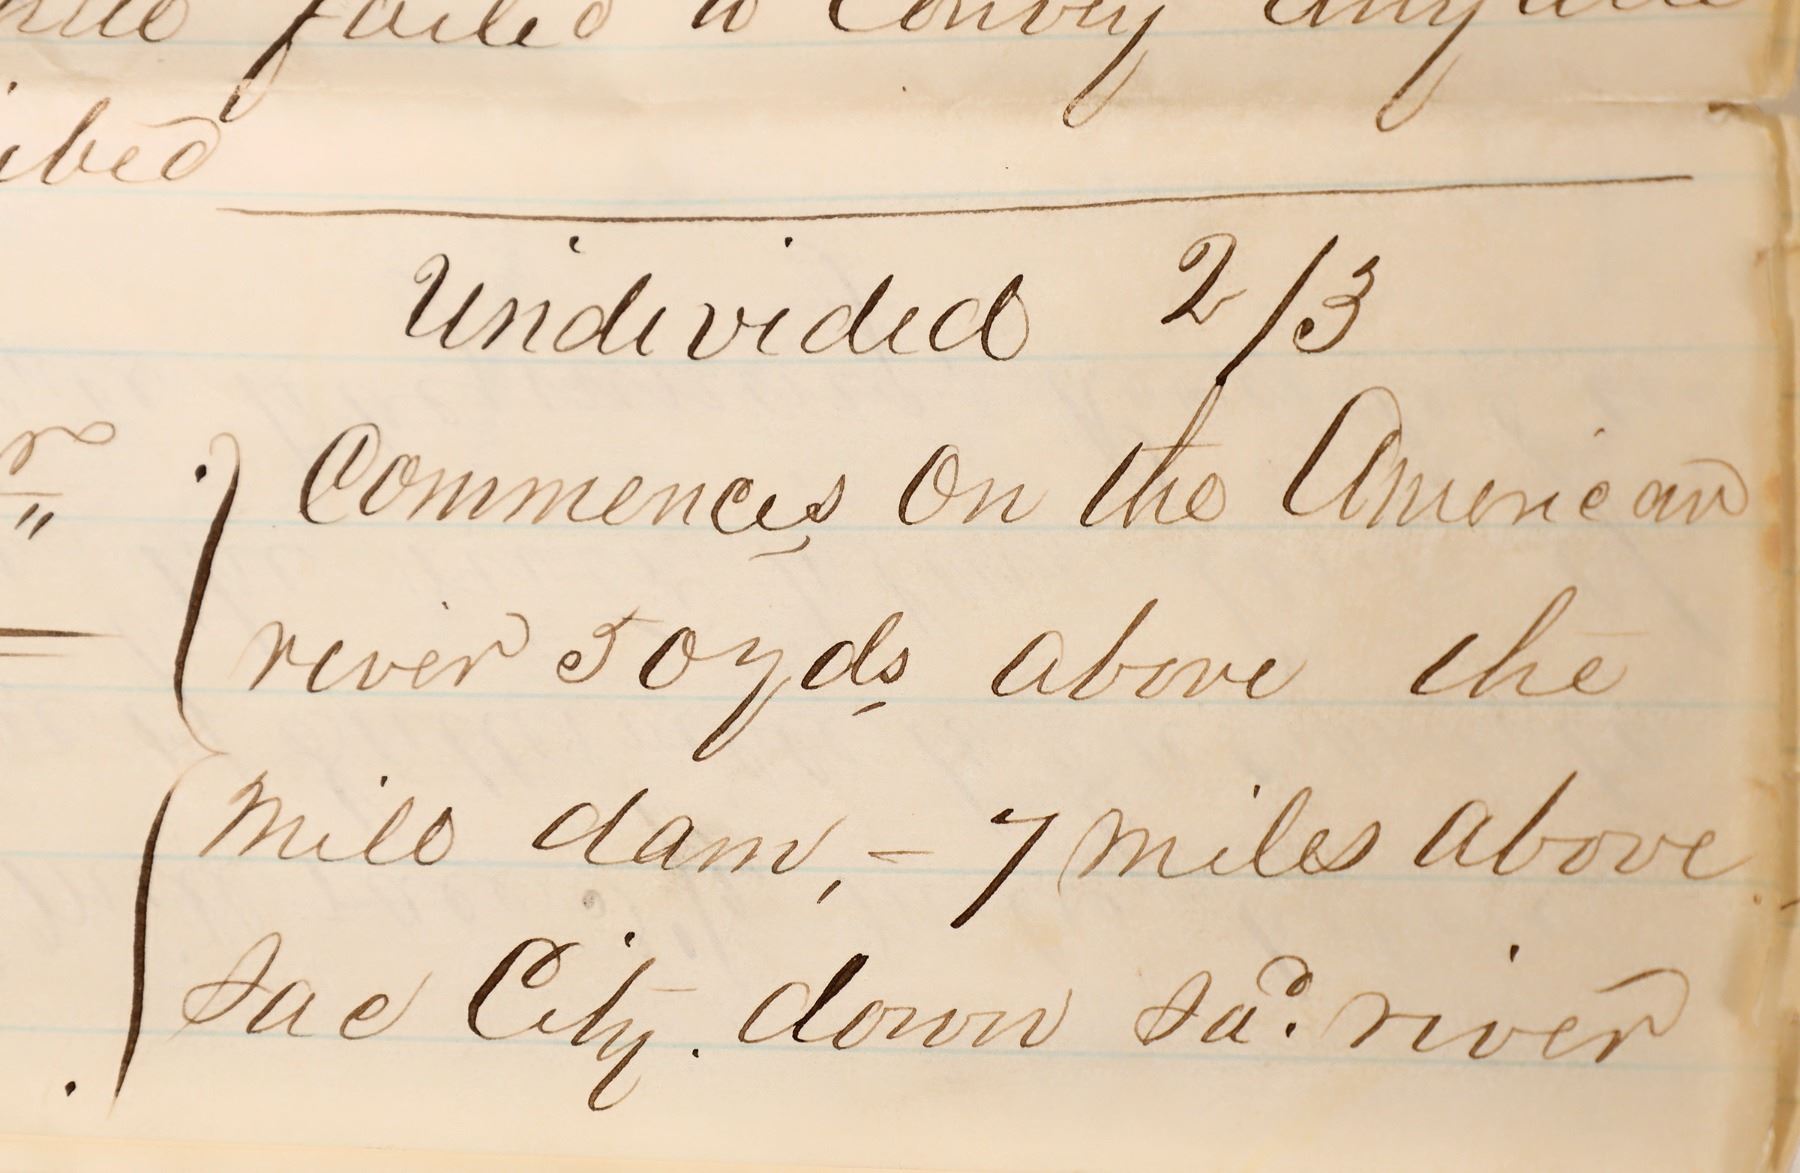 failed to convey any
ibed
Undivided 2/3
Commences On the American
river 50 yds above the
Mill dam, - 7 miles above
Sac City. down Sad. river